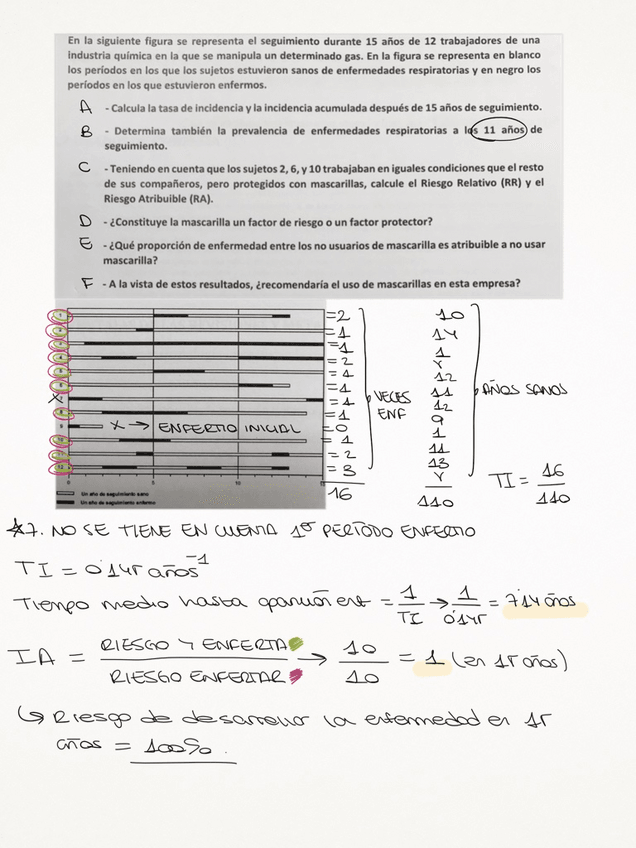 En la siguiente figura se representa el seguimiento durante 15 años de 12 trabajadores de una
industria química en la que se manipula un determinado gas. En la figura se representa en blanco
los períodos en los que los sujetos estuvieron sanos de enfermedades respiratorias y en negro los
períodos en los que estuvieron enfermos.
A - Calcula la tasa de incidencia y la incidencia acumulada después de 15 años de seguimiento.
B - Determina también la prevalencia de enfermedades respiratorias a los 11 años de
seguimiento.
C - Teniendo en cuenta que los sujetos 2, 6, y 10 trabajaban en iguales condiciones que el resto
de sus compañeros, pero protegidos con mascarillas, calcule el Riesgo Relativo (RR) y el
Riesgo Atribuible (RA).
D - ¿Constituye la mascarilla un factor de riesgo o un factor protector?
E - ¿Qué proporción de enfermedad entre los no usuarios de mascarilla es atribuible a no usar
mascarilla?
F - A la vista de estos resultados, ¿recomendaría el uso de mascarillas en esta empresa?
1 =2 10
2 =1 14
3 =1 1
4 =2
5 =1 12
6 =1 11 AÑOS SANOS
X =1 VECES 12
8 =1 ENF 9
9 X → ENFERMO INICIAL =0 1
10 =1 11
11 =2 13
12 =3
0 5 10 16 110 TI = 16/110
Un año de seguimiento sano
Un año de seguimiento enfermo
*7. NO SE TIENE EN CUENTA 1º PERÍODO ENFERMO
TI = 0'145 años⁻¹
Tiempo medio hasta aparición enf = 1/TI → 1/0'145 = 7'14 años
IA = RIESGO Y ENFERMA / RIESGO ENFERMAR → 10/10 = 1 (en 15 años)
↳ Riesgo de desarrollar la enfermedad en 15
años = 100%.